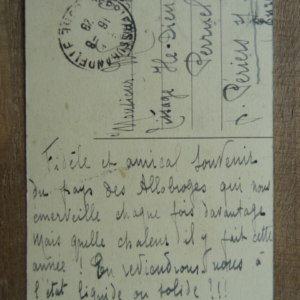 Monsieur
Village
Perriers
p. Periers
Fidèle et amical souvenir
du pays des Allobroges qui nous
emerveille chaque fois davantage
Mais quelle chaleur il y fait cette
année ! En reviendrons-nous à
l'état liquide ou solide ? !!